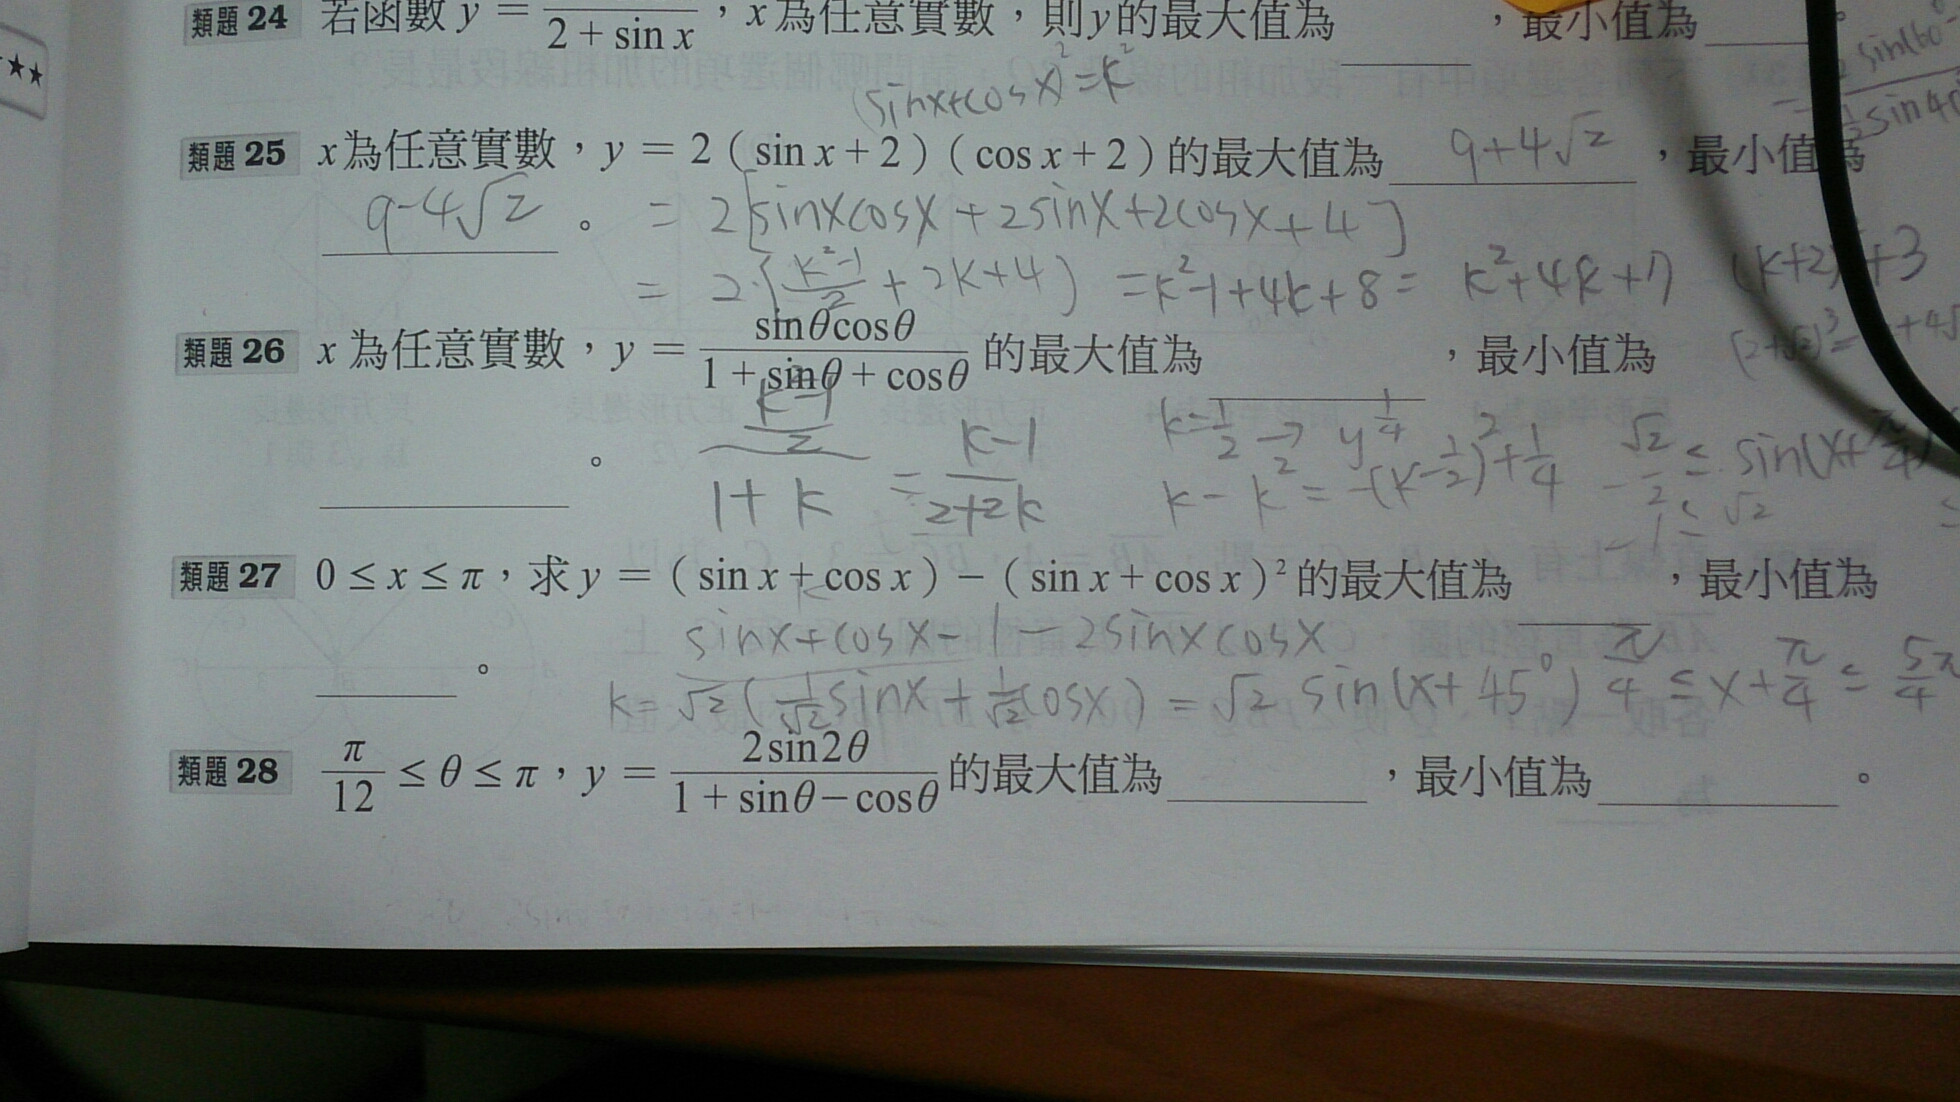 類題24 若函數 y = ——/(2 + sin x)，x 為任意實數，則y的最大值為____，最小值為____。
(sinx+cosx)²=k²
類題25 x為任意實數，y = 2（sin x + 2）（cos x + 2）的最大值為 9+4√2 ，最小值為
9-4√2 。 = 2[sinxcosx + 2sinx+2cosx+4]
= 2·{(k²-1)/2 + 2k+4} = k²-1+4k+8 = k²+4k+7
類題26 x 為任意實數，y = sinθcosθ/(1 + sinθ + cosθ) 的最大值為____，最小值為
____。 ((k²-1)/2)/(1+k) = (k-1)/(2+2k)
k=1/2 → y 1/4
k - k² = -(k-1/2)²+1/4
類題27 0 ≤ x ≤ π，求 y =（sin x + cos x）−（sin x + cos x）² 的最大值為____，最小值為
k
sinx+cosx-1-2sinxcosx
____。
k= √2(1/√2 sinx + 1/√2 cosx) = √2 sin(x+45°) π/4 ≤ x+π/4 ≤ 5π/4
類題28 π/12 ≤ θ ≤ π，y = 2sin2θ/(1 + sinθ − cosθ) 的最大值為____，最小值為____。